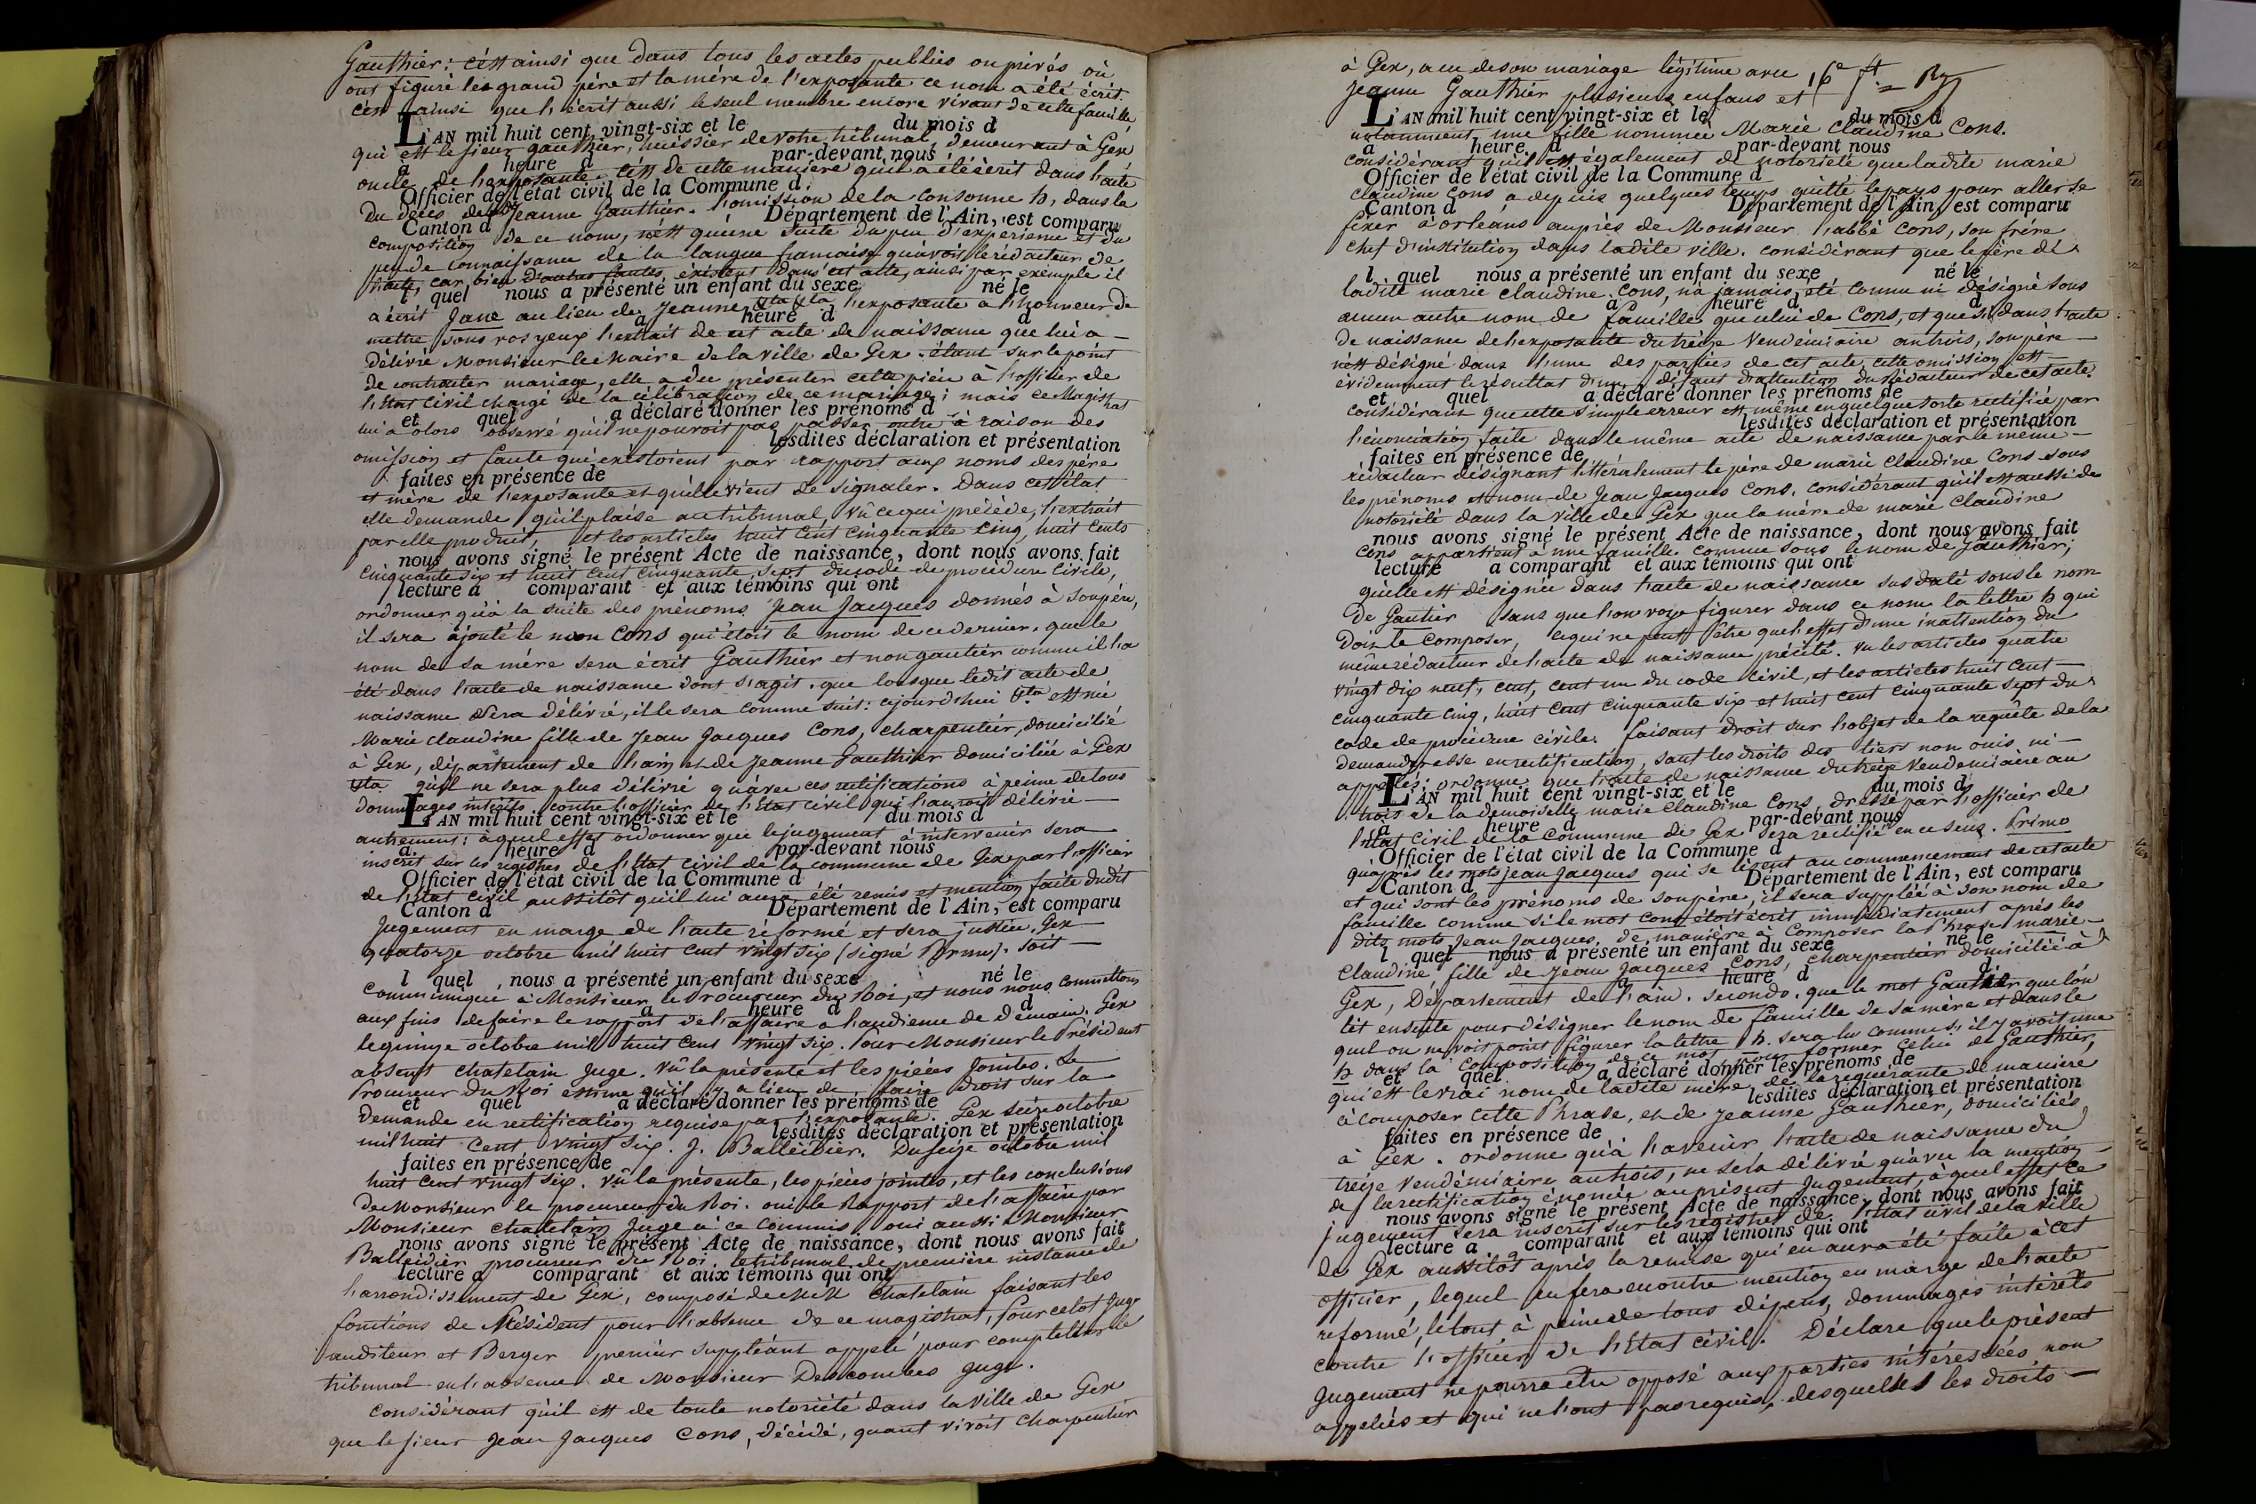 Gauthier: c'est ainsi que dans tous les actes publics ou privés où
ont figuré les grand père et la mère de l'exposante ce nom a été écrit.
c'est ainsi que l'écrit aussi le seul membre encore vivant de cette famille,
L'AN mil huit cent vingt-six et le du mois d
qui est le sieur gauthier, huissier de votre tribunal, demeurant à Gex
a heure d par-devant nous
oncle de l'exposante. c'est de cette manière qu'il a été écrit dans l'acte
Officier de l'état civil de la Commune d
du décès de Jeanne Gauthier. l'omission de la consonne h, dans la
Canton d Département de l'Ain, est comparu
composition de ce nom, n'est qu'une suite du peu d'expérience et du
peu de connaissance de la langue française qu'avoit le rédacteur de
l'acte, car bien d'autres fautes existent dans cet acte, ainsi par exemple il
l quel nous a présenté un enfant du sexe né le
a écrit Jane au lieu de Jeanne l'exposante a l'honneur de
a heure d d
mettre sous vos yeux l'extrait de cet acte de naissance que lui a
délivré Monsieur le Maire de la ville de Gex. étant sur le point
de contracter mariage, elle a du présenter cette pièce à l'officier de
l'Etat civil chargé de la célébration de ce mariage; mais ce Magistrat
et quel a déclaré donner les prénoms d
lui a alors observé qu'il ne pouvoit pas passer outre à raison des
lesdites déclaration et présentation
omission et faute qui existoient par rapport aux noms des père
faites en présence de
et mère de l'exposante et qu'elle vient de signaler. Dans cet état
elle demande qu'il plaise au tribunal, Vu ce qui précède, l'extrait
par elle produit, et les articles huit cent cinquante cinq, huit cents
nous avons signé le présent Acte de naissance, dont nous avons fait
cinquante six et huit cent cinquante sept du code de procédure civile,
lecture a comparant et aux témoins qui ont
ordonner qu'à la suite des prénoms Jean Jacques donnés à son père,
il sera ajouté le nom Cons qui étoit le nom de ce dernier. que le
nom de sa mère sera écrit Gauthier et non gautier comme il l'a
été dans l'acte de naissance dont s'agit. que lorsque ledit acte de
naissance sera délivré, il le sera comme suit: ajourd'hui &ta est née
Marie claudine fille de Jean Jacques Cons, charpentier, domicilié
à Gex, département de l'ain et de Jeanne Gauthier domiciliée à Gex
&ta qu'il ne sera plus délivré qu'avec ces rectifications à peine de tous
dommages intérêts contre l'officier de l'Etat civil qui l'auroit délivré
L'AN mil huit cent vingt-six et le du mois d
autrement; à quel effet ordonner que le jugement à intervenir sera
a heure d par-devant nous
inscrit sur les registres de l'Etat civil de la commune de Gex par l'officier
Officier de l'état civil de la Commune d
de l'Etat civil aussitôt qu'il lui aura été remis et mention faite dudit
Canton d Département de l'Ain, est comparu
Jugement en marge de l'acte réformé et sera justice. Gex
quatorze octobre mil huit cent vingt six (signé). Soit
l quel nous a présenté un enfant du sexe né le
communiqué à Monsieur le Procureur du Roi, et nous nous commettons
a heure d d
aux fins de faire le rapport de l'affaire a l'audience de demain. Gex
le quinze octobre mil huit cent vingt six. Pour Monsieur le Président
absent chatelain Juge. Vû la présente et les pièces jointes. Le
Procureur du Roi estime qu'il y a lieu de faire droit sur la
et quel a déclaré donner les prénoms de
demande en rectification requise par l'exposante. Gex seize octobre
lesdites déclaration et présentation
mil huit cent vingt six. J. Balleidier. Du seize octobre mil
faites en présence de
huit cent vingt six. Vû la présente, les pièces jointes, et les conclusions
de Monsieur le procureur du Roi. oui le Rapport de l'affaire par
Monsieur chatelain Juge à ce commis, oui aussi Monsieur
nous avons signé le présent Acte de naissance, dont nous avons fait
Balleidier procureur du Roi. le tribunal de première instance de
lecture a comparant et aux témoins qui ont
l'arrondissement de Gex, composé de MM chatelain faisant les
fonctions de Président pour l'absence de ce magistrat, Juge
auditeur et Berger premier suppléant appelé pour completter le
tribunal en l'absence de Monsieur Descombes Juge.
considérant qu'il est de toute notoriété dans la ville de Gex
que le sieur Jean Jacques Cons, décédé, quant vivoit charpentier
à Gex, a eu de son mariage légitime avec
Jeanne Gauthier plusieurs enfans et
16e ft Ry
L'AN mil huit cent vingt-six et le du mois d
notamment une fille nommée Marie Claudine Cons.
a heure d par-devant nous
considérant qu'il est également de notoriété que ladite marie
Officier de l'état civil de la Commune d
claudine Cons a depuis quelques temps quitté le pays pour aller se
Canton d Département de l'Ain, est comparu
fixer à orléans auprès de Monsieur l'abbé Cons, son frère
chef d'institution dans ladite ville. considérant que le père de
l quel nous a présenté un enfant du sexe né le
ladite marie claudine Cons, n'a jamais été connu ni désigné sous
a heure d d
aucun autre nom de famille que celui de Cons, et que si dans l'acte
de naissance de l'exposante du treize Vendémiaire an trois, son père
n'est désigné dans l'une des parties de cet acte, cette omission est
évidemment le résultat d'un défaut d'attention du rédacteur de cet acte.
et quel a déclaré donner les prénoms de
considérant que cette simple erreur est même en quelque sorte rectifiée par
lesdites déclaration et présentation
l'énonciation faite dans le même acte de naissance par le même
faites en présence de
rédacteur désignant littéralement le père de marie claudine Cons sous
les prénoms et nom de Jean Jacques Cons. considérant qu'il est aussi de
notoriété dans la ville de Gex que la mère de marie Claudine
nous avons signé le présent Acte de naissance, dont nous avons fait
Cons appartient à une famille connue sous le nom de Gauthier;
lecture a comparant et aux témoins qui ont
qu'elle est désignée dans l'acte de naissance sus daté sous le nom
de Gautier sans que l'on voye figurer dans ce nom la lettre h qui
doit le composer, ce qui ne peut être que l'effet d'une inattention du
même rédacteur de l'acte de naissance précité. Vu les articles quatre
vingt dix neuf, cent, cent un du code civil, et les articles huit cent
cinquante cinq, huit cent cinquante six et huit cent cinquante sept du
code de procédure civile. faisant droit sur l'objet de la requête de la
demanderesse en rectification, sauf les droits des tiers non ouis ni
appelés; ordonne que l'acte de naissance du treize Vendémiaire an
L'AN mil huit cent vingt-six et le du mois d
trois de la demoiselle marie claudine Cons, dressé par l'officier de
a heure d par-devant nous
l'Etat civil de la Commune de Gex sera rectifié en ce sens. Primo
Officier de l'état civil de la Commune d
qu'après les mots jean Jacques qui se lisent au commencement de cet acte
Canton d Département de l'Ain, est comparu
et qui sont les prénoms de son père, il sera suppléé à son nom de
famille comme si le mot Cons étoit écrit immédiatement après les
dits mots Jean Jacques, de manière à composer la Phrase marie
l quel nous a présenté un enfant du sexe né le
Claudine fille de Jean Jacques Cons, charpentier domicilié à
a heure d d
Gex, Département de l'ain. secondo. que le mot Gautier que l'on
lit ensuite pour désigner le nom de famille de sa mère et dans le
quel on ne voit point figurer la lettre h. sera lu comme s'il y avoit une
h dans la composition de ce mot pour former celui de Gauthier,
et quel a déclaré donner les prénoms de
qui est le vrai nom de ladite mère de la requérante de manière
lesdites déclaration et présentation
à composer cette Phrase, et de Jeanne Gauthier, domiciliés
faites en présence de
à Gex. ordonne qu'à l'avenir l'acte de naissance du
treize Vendémiaire an trois, ne sera délivré qu'avec la mention
de la rectification énoncée au présent Jugement, à quel effet ce
nous avons signé le présent Acte de naissance, dont nous avons fait
jugement sera inscrit sur les registres de l'Etat civil de la ville
lecture a comparant et aux témoins qui ont
de Gex aussitôt après la remise qui en aura été faite à cet
officier, lequel en fera en outre mention en marge de l'acte
reformé, le tout à peine de tous dépens, dommages intérêts
contre l'officier de l'Etat civil. Déclare que le présent
Jugement ne pourra être opposé aux parties intéressées non
appelées et qui ne l'ont pas requis, desquelles les droits